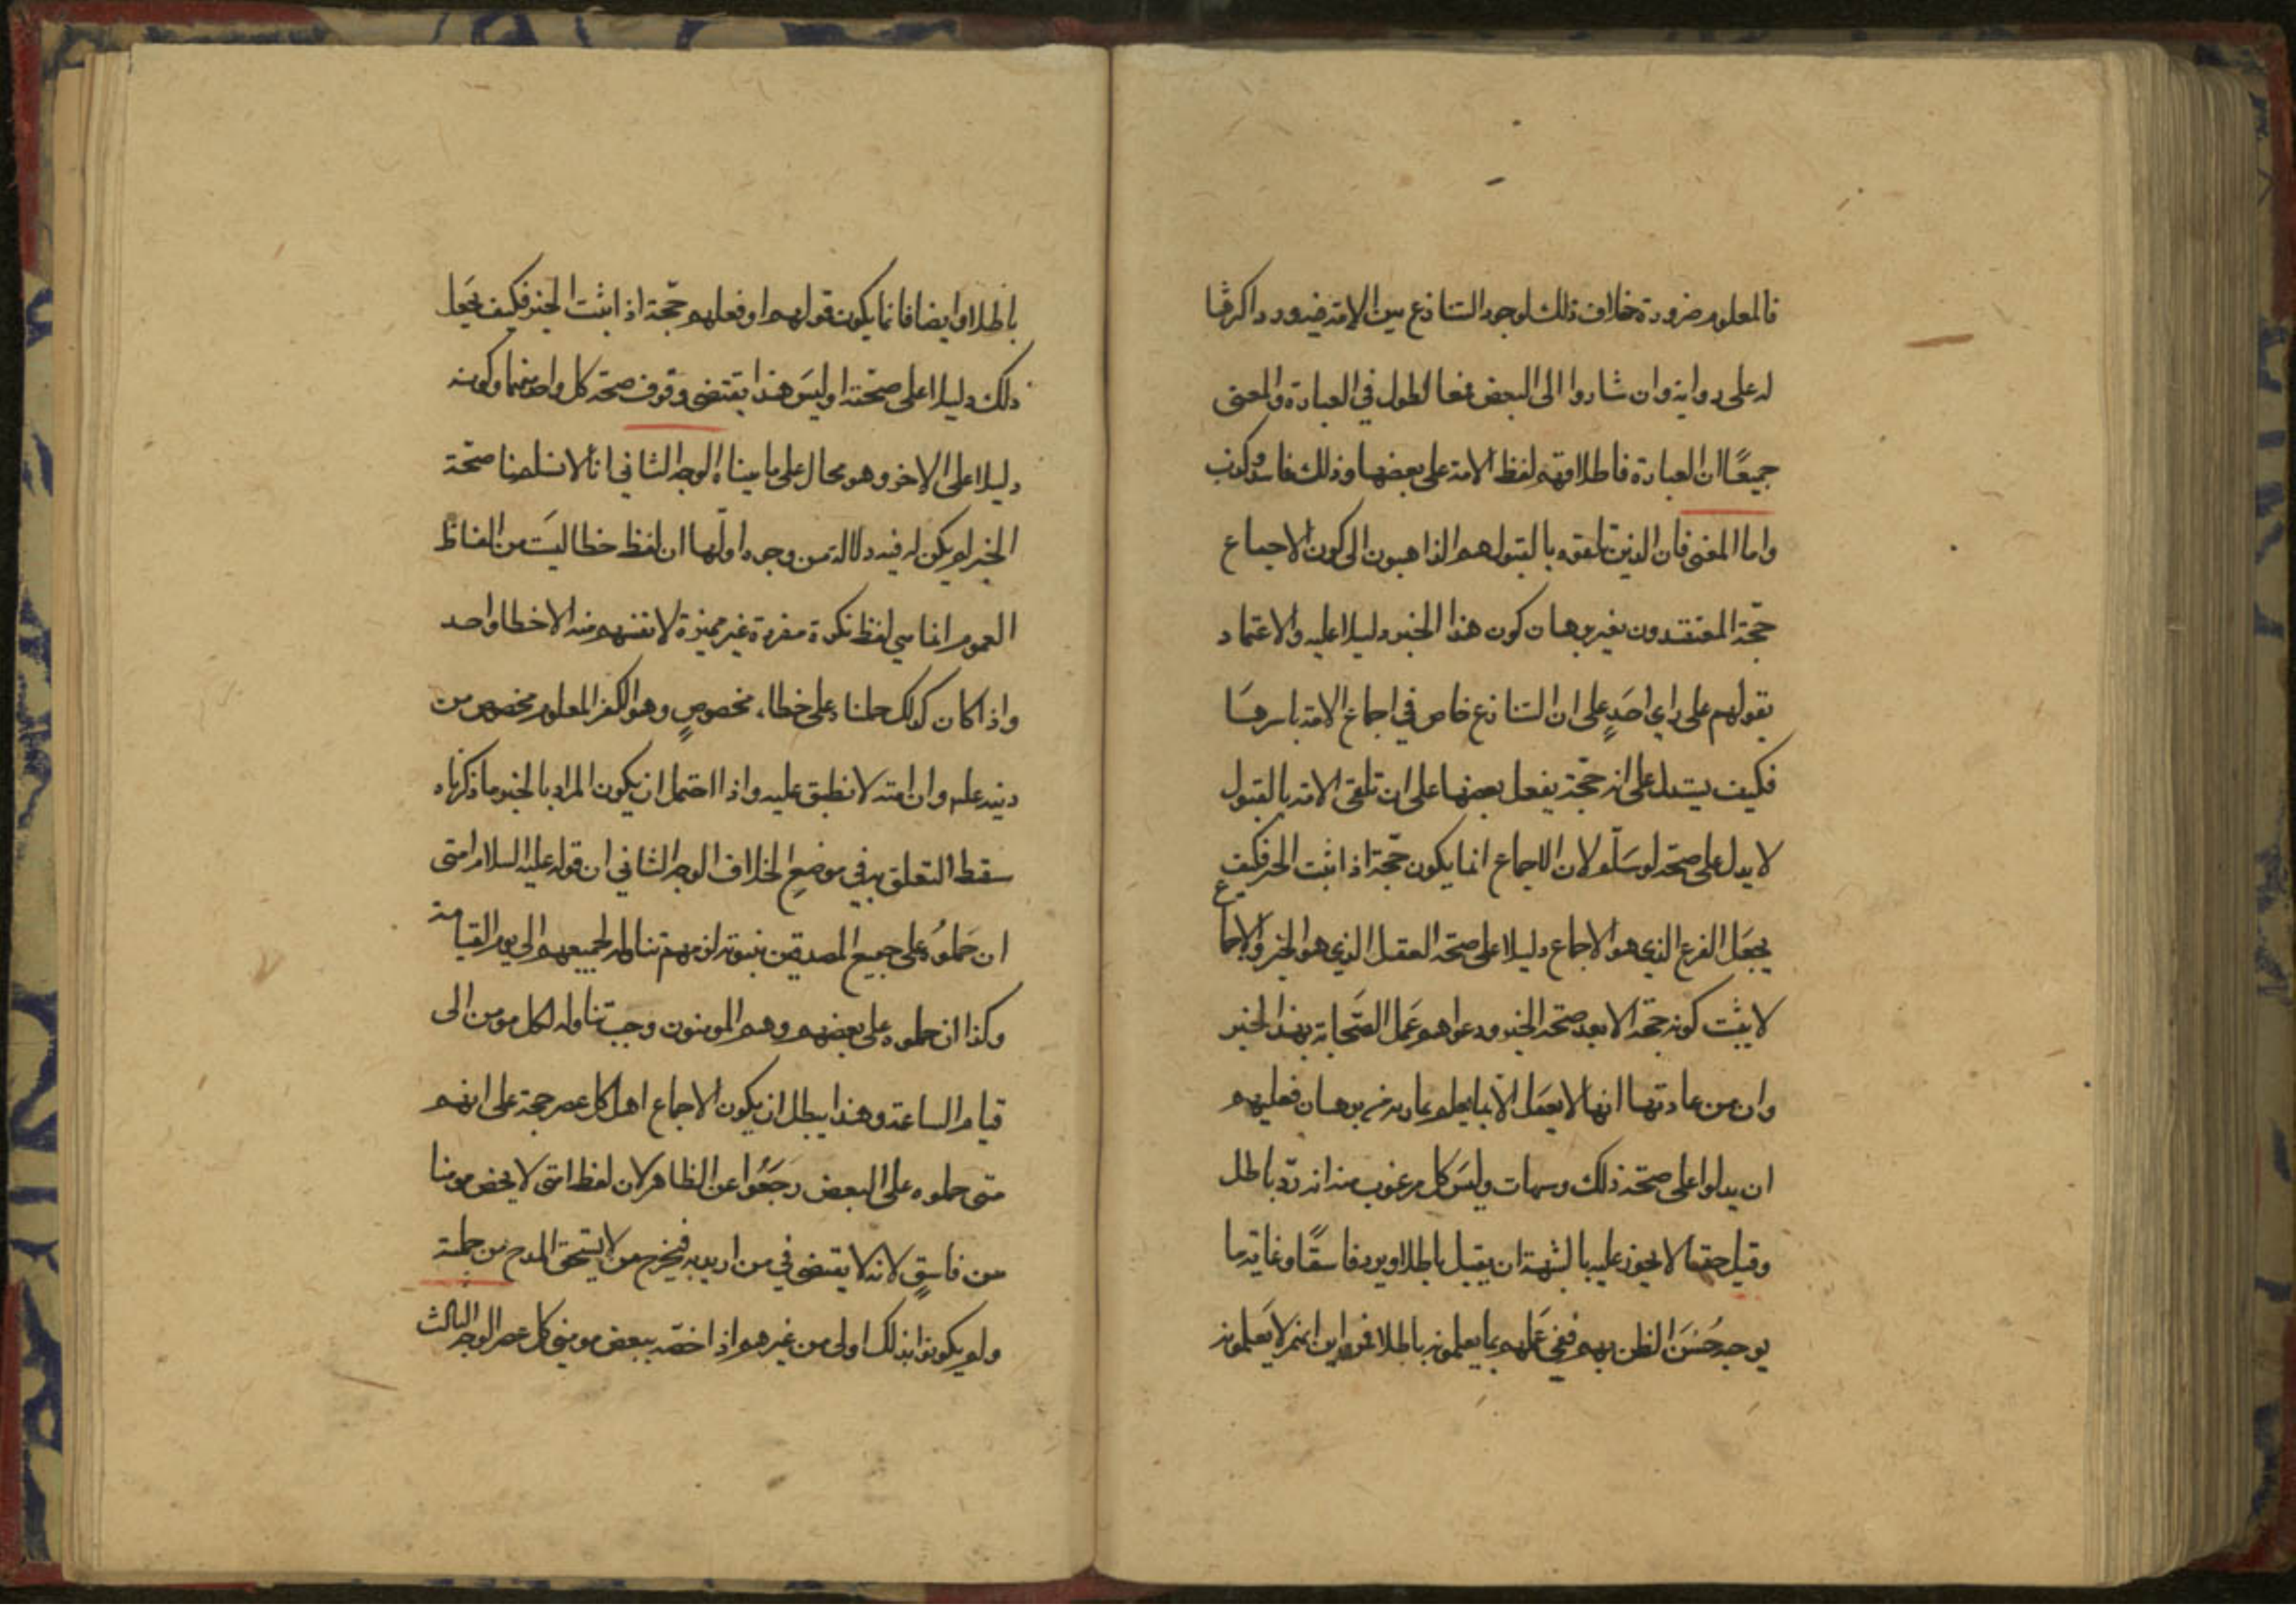 فالمعلوم ضرورة خلاف ذلك لوجود التنازع بين الامة فيه ورد اكرثها
له على رواية وان شاروا الى البعض فعا لطول في العبارة والمعنى
جميعًا ان العبارة فاطلاقهم لفظ الامة على بعضها وذلك فاسد وكذب
واما المعنى فان الذين تلقوه بالقبول هم الذاهبون الى كون الاجماع
حجّة المعتقدون بغير برهان كون هذا الخبر دليلا عليه والاعتماد
بقولهم على راي احَدٍ على ان التنازع خاص في اجماع الامة باسرهَا
فكيف يستدل على انه حجّة بفعل بعضها على ان تلقى الامة بالقبول
لا يدل على صحته لو سَلّم لان الاجماع انما يكون حجّة اذا ثبت الخبر فكيف
يجعَل الفرع الذي هو الاجماع دليلا على صحة العقل الذي هو الخبر والاجماع
لا يثبت كونه حجّة الا بعد صحّة الخبر ودعواهم عَمل الصّحابة بهذا الخبر
وان من عادتها انها لا يعمَل الّا بما يعلم برهان فعليهم
ان يدلوا على صحّة ذلك وسهات وليسَ كل مرغوب منه انه ردّ باطل
وقيل حقها لا يجوز عليه بالشبهة ان يقبل باطلا ويرد فاسقًا وغايته ما
يوجبه حُسنَ الظن بهم فنفي عَملهم بما يعلمونه باطلا فمن اين انهم لا يَعلمونه
باطلا وايضا فانما يكون قولهم او فعلهم حجّة اذا ثبت الخبر فكيف يجعَل
ذلك دليلا على صحّته اوليسَ هذا يقتضى وقوف صحة كل واحد منهما وكونه
دليلا على الاخر وهو محال على ما بيناه الوجه الثاني انا لا نسلم صحّة
الخبر لم يكن له فيه دلالة من وجوه اولها ان لفظ خطا ليسَت من الفاظ
العموم انما هي لفظ نكرة مفردة غير مميزة لا تفهم منه الا خطا واحد
واذا كان كذلك حملناه على خطاء مخصوصٍ وهو الكفر المعلوم مخصوص من
دينه عليه وان امته لا نطبق عليه واذا احتمل ان يكون المراد بالخبر ما ذكرناه
سقط التعلق به في موضع الخلاف الوجه الثاني ان قوله عليه السلام امتى
ان حَملوُه على جميع المصدقين بنبوته لزمهم تناوله لجميعهم الى يوم القيامة
وكذا ان حملوه على بعضهم وهم المومنون وجب تناوله لكل مومن الى
قيام الساعة وهذا يبطل ان يكون الاجماع اهل كل عصر حجة على انهم
متى حملوه على البعض رجَعُوا عن الظاهر لان لفظ امتى لا يخص مومنا
من فاسقٍ لانه لا يقتضى في من اريد به فيخرج من لا يستحق المدح من جملته
ولم يكونوا بذلك اولى من غيرهم اذا خصّه ببعض مومنى كل عصر الوجه الثالث